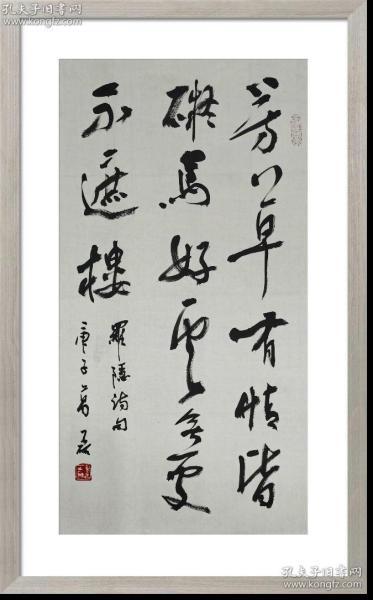 孔夫子旧书网
www.kongfz.com
芳草有情皆
礙馬好雲無處
不遮樓
羅隱詩句
庚子
孔夫子旧书网
www.kongfz.com